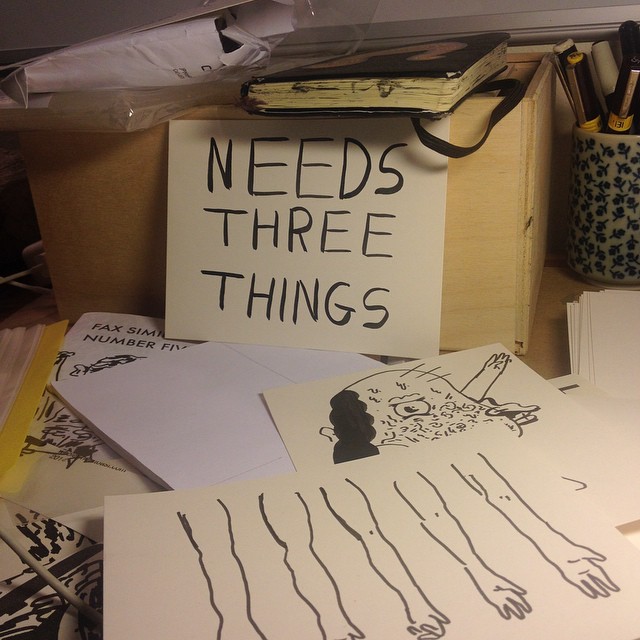 NEEDS
THREE
THINGS
FAX SIMI
NUMBER FIV